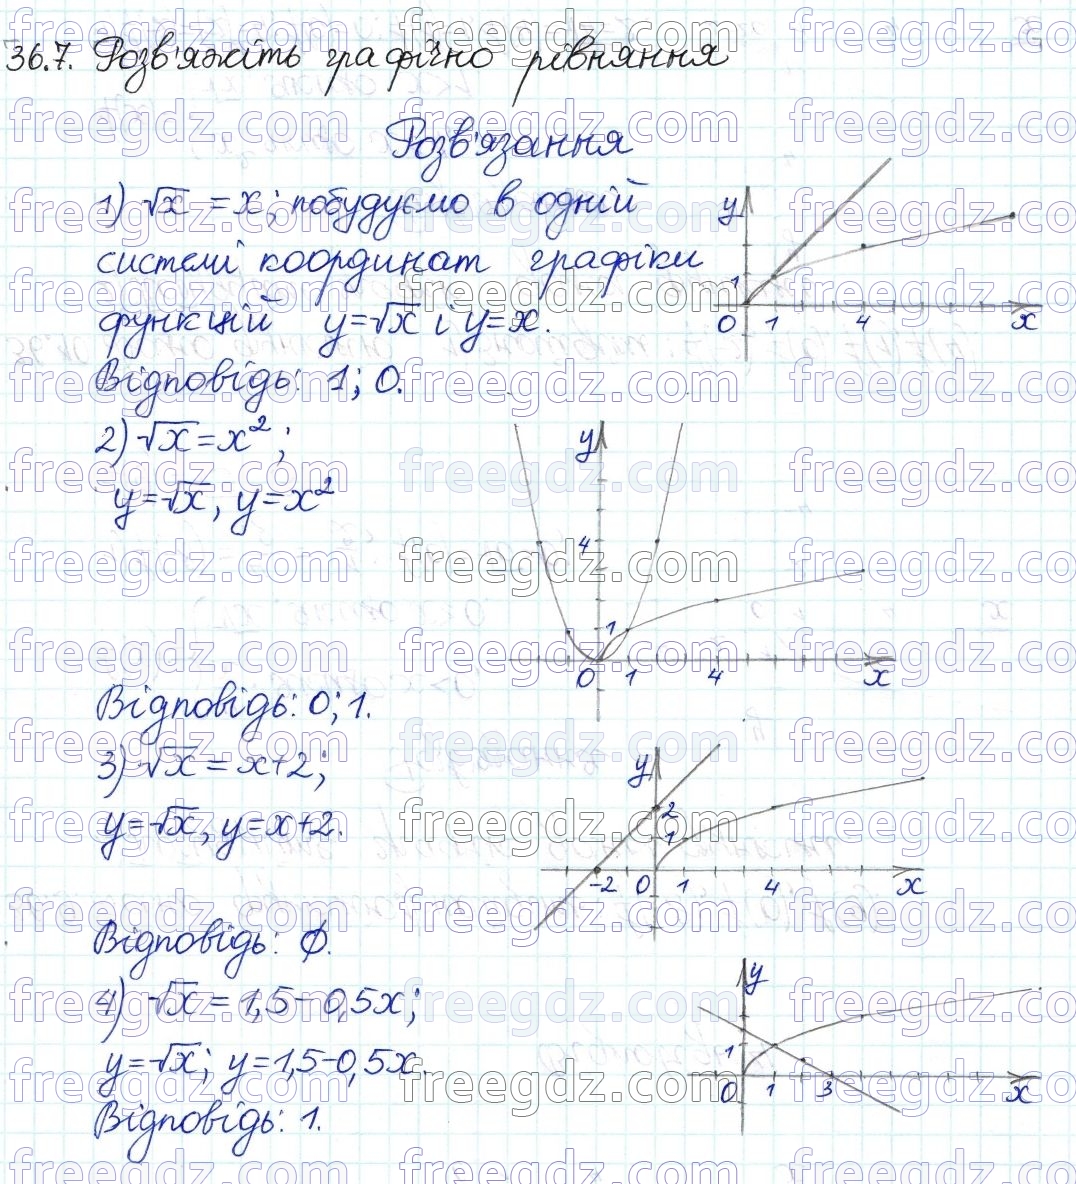 36.7. Розв'яжіть графічно рівняння
Розв'язання
1) √x = x; побудуємо в одній
системі координат графіки
функцій y=√x і y=x.
Відповідь: 1; 0.
y
1
0 1 4 x
2) √x = x²;
y=√x, y=x²
y
4
1
0 1 4 x
Відповідь: 0; 1.
3) √x = x+2;
y=√x, y=x+2.
y
2
1
-2 0 1 4 x
Відповідь: ∅.
4) √x = 1,5-0,5x;
y=√x; y=1,5-0,5x.
Відповідь: 1.
y
1
0 1 3 x
freegdz.com